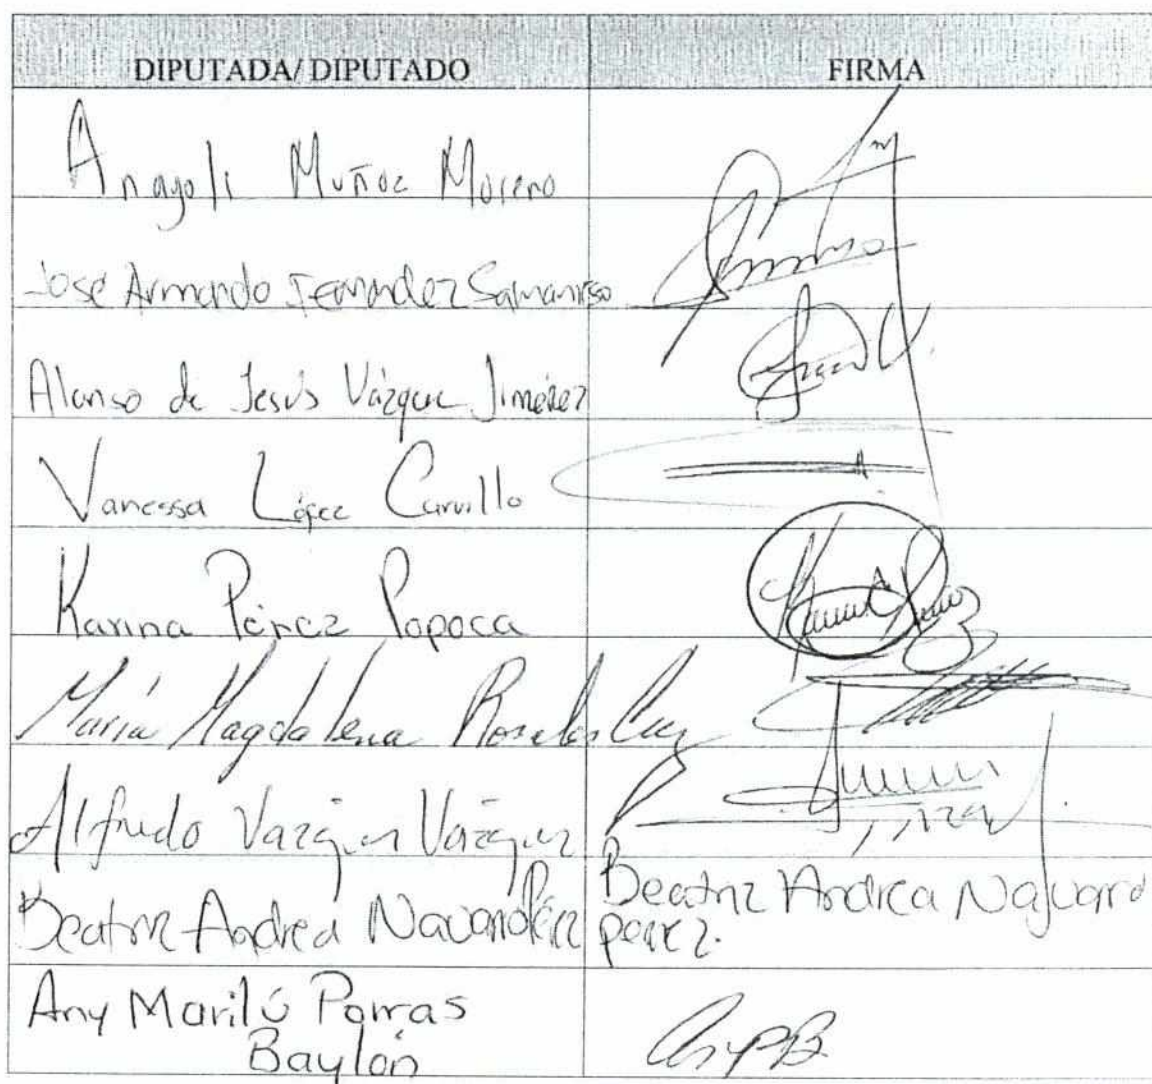 DIPUTADA/ DIPUTADO FIRMA
Anayeli Muñoz Moreno
José Armando Fernández Samaniego
Alonso de Jesús Vázquez Jiménez
Vanessa López Carrillo
Karina Pérez Popoca
María Magdalena Rosales Cruz
Alfredo Vázquez Vázquez
Beatriz Andrea Navarro Pérez Beatriz Andrea Navarro
perez.
Any Marilú Porras
Baylón